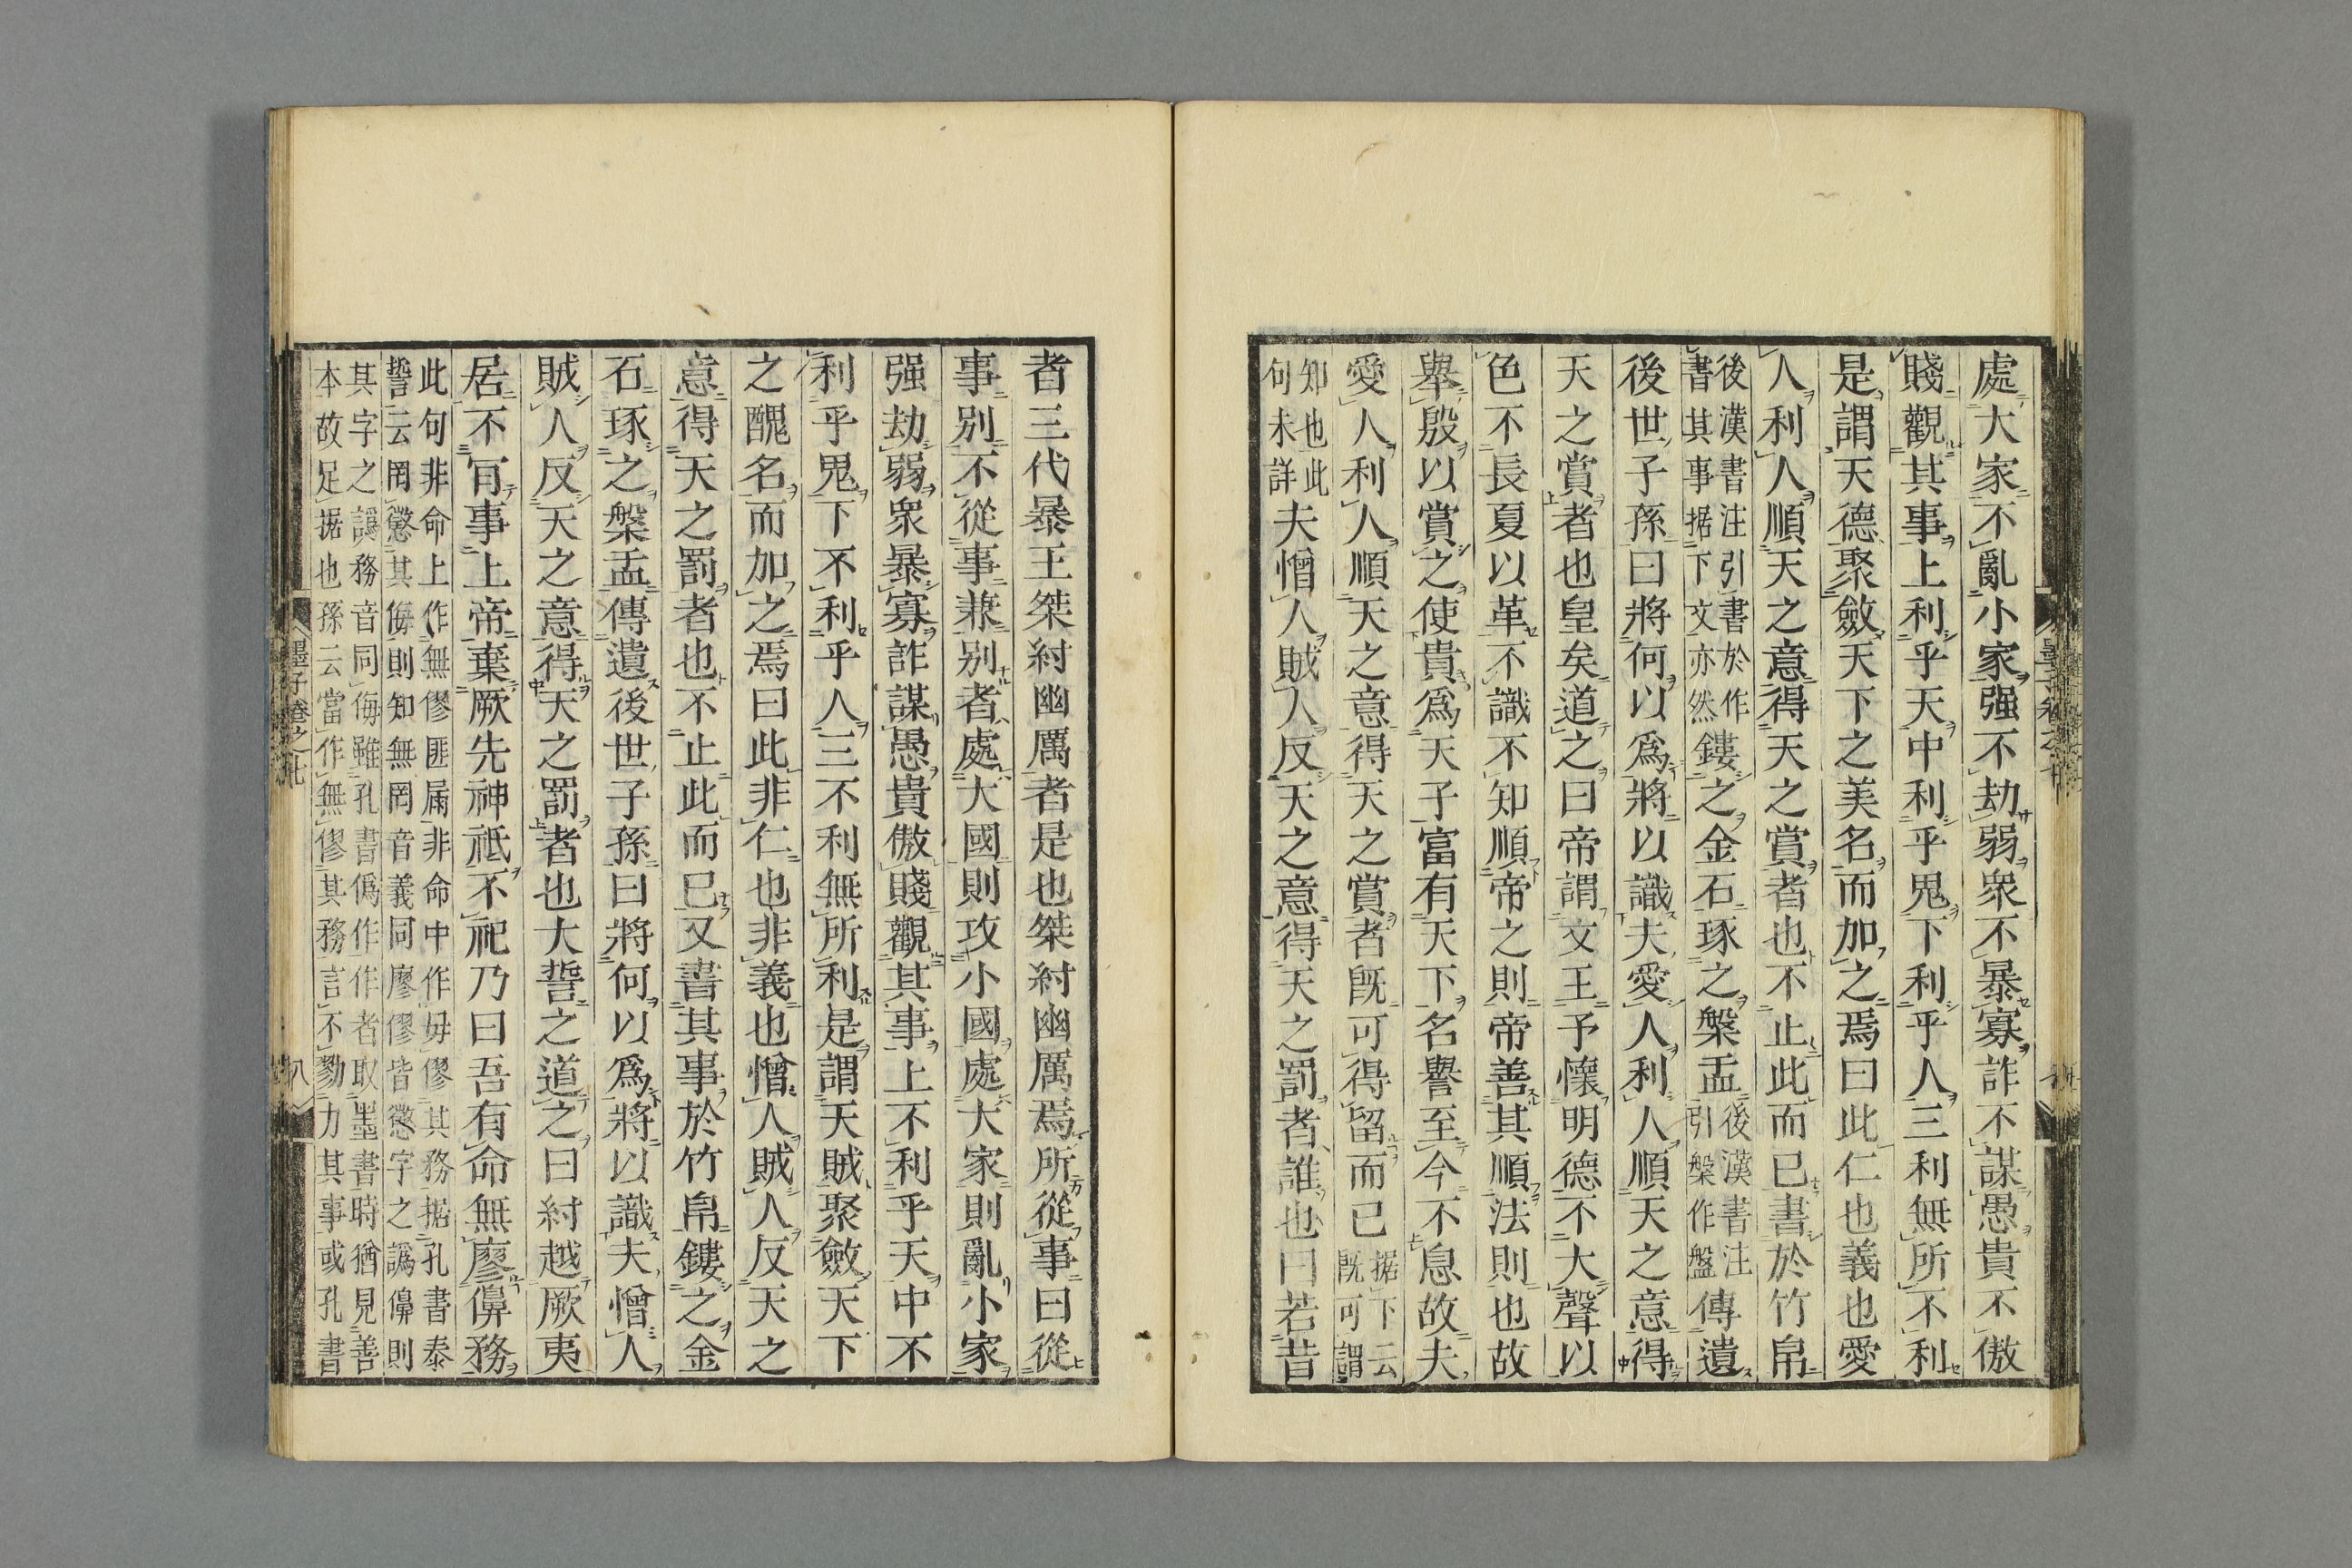 處大家不亂小家强不劫弱衆不暴寡詐不謀愚貴不傲
賤觀其事上利乎天中利乎鬼下利乎人三利無所不利
是謂天德聚斂天下之美名而加之焉曰此仁也義也愛
人利人順天之意得天之賞者也不止此而已書於竹帛
後漢書注引書於作
書其事据下文亦然
鏤之金石琢之槃盂
後漢書注
引槃作盤
傳遺
後世子孫曰將何以爲將以識夫愛人利人順天之意得
天之賞者也皇矣道之曰帝謂文王予懷明德不大聲以
色不長夏以革不識不知順帝之則帝善其順法則也故
舉殷以賞之使貴爲天子富有天下名譽至今不息故夫
愛人利人順天之意得天之賞者既可得留而已
据下云
既可謂
知也此
句未詳
夫憎人賊人反天之意得天之罰者誰也曰若昔
者三代暴王桀紂幽厲者是也桀紂幽厲焉所從事曰從
事別不從事兼別者處大國則攻小國處大家則亂小家
强劫弱衆暴寡詐謀愚貴傲賤觀其事上不利乎天中不
利乎鬼下不利乎人三不利無所利是謂天賊聚斂天下
之醜名而加之焉曰此非仁也非義也憎人賊人反天之
意得天之罰者也不止此而已又書其事於竹帛鏤之金
石琢之槃盂傳遺後世子孫曰將何以爲將以識夫憎人
賊人反天之意得天之罰者也大誓之道之曰紂越厥夷
居不肎事上帝棄厥先神祗不祀乃曰吾有命無廖僔務
此句非命上作無僇匪屚非命中作毋僇其務据孔書泰
誓云罔懲其侮則知無罔音義同廖僇皆懲字之譌僔則
其字之誤務音同侮雖孔書僞作作者取墨書時猶見善
本故足据也孫云當作無僇其務言不勠力其事或孔書
墨子卷之七
八